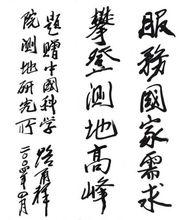 服務國家需求
攀登測地高峰
題贈中國科学
院測地研究所
路甬祥
二〇〇四年四月